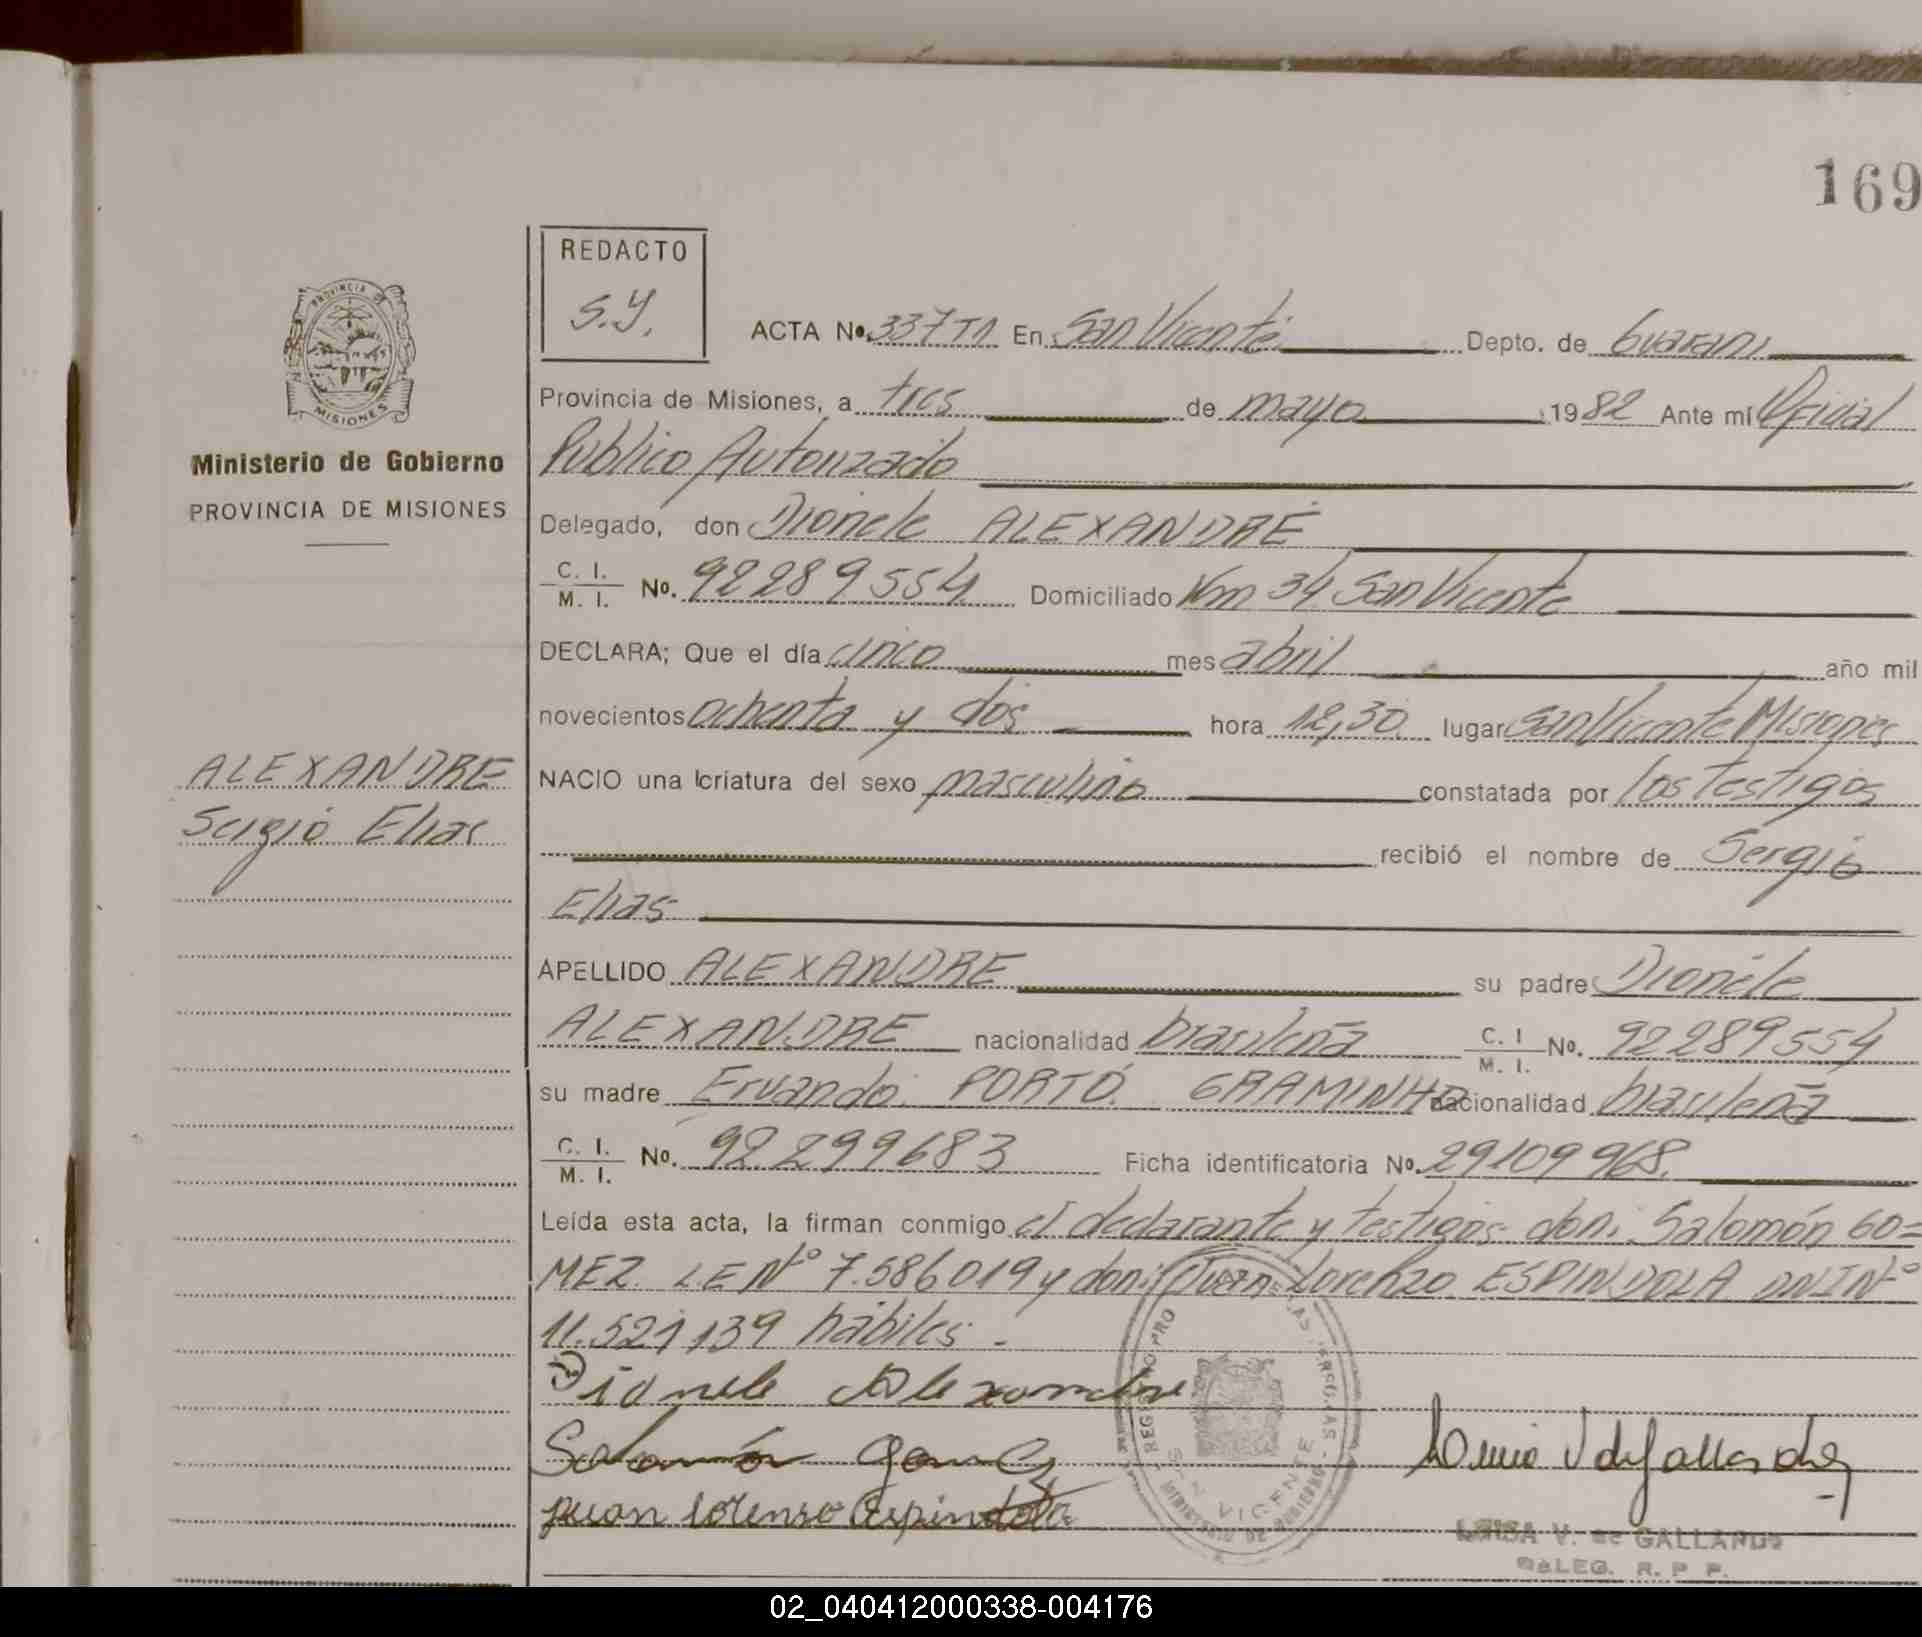 169
REDACTO
S.Y.
PROVINCIA DE
MISIONES
Ministerio de Gobierno
PROVINCIA DE MISIONES
ACTA Nº. 337 T1 En San Vicente Depto. de Guarani
Provincia de Misiones, a tres de mayo 1982 Ante mí Oficial
Publico Autorizado
Delegado, don Dionele ALEXANDRE
C. I. / M. I. Nº. 92289554 Domiciliado Km 34 San Vicente
DECLARA; Que el día cinco mes abril año mil
novecientos ochenta y dos hora 12,30 lugar San Vicente Misiones
ALEXANDRE
Sergio Elias
NACIO una criatura del sexo masculino constatada por los testigos
recibió el nombre de Sergio
Elias
APELLIDO ALEXANDRE su padre Dionele
ALEXANDRE nacionalidad brasileña C. I / M. I. Nº. 92289554
su madre Ervando PORTO GRAMINHO nacionalidad brasileña
C. I. / M. I. Nº. 92299683 Ficha identificatoria Nº. 29109968.
Leída esta acta, la firman conmigo el declarante y testigos don: Salomón GO=
MEZ L.E Nº 7.586019 y don: Juan Lorenzo ESPINDOLA DNI Nº
11.521139 hábiles.-
Dionele Alexandre
Salomón Gomez
Juan Lorenso Espindola
REGISTRO PRO
SAN VICENTE
MINISTERIO DE GOBIERNO
LUISA V. de GALLARDO
DELEG. R. P. P.
02_040412000338-004176